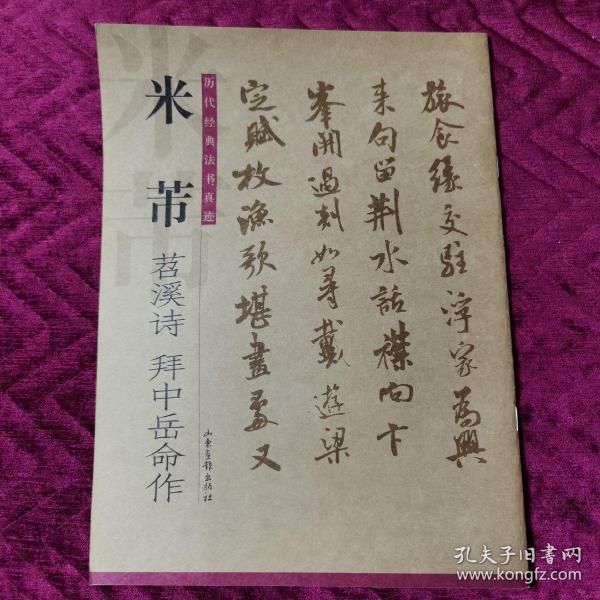 米芾
历代经典法书真迹
米芾
苕溪诗 拜中岳命作
旅食緣交駐浮家為興
来句留荆水話襟向卞
峯開過剡如尋戴遊梁
定賦枚漁歌堪畫處又
山东画报出版社
孔夫子旧书网
www.kongfz.com